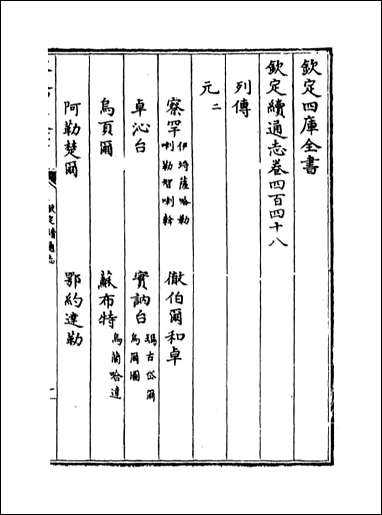 欽定四庫全書
欽定續通志卷四百四十八
列傳
元二
察罕 徹伯爾和卓
卓沁台 實訥台 瑪古岱爾 烏爾圖
烏頁爾 蘇布特 烏蘭哈達
阿勒楚爾 鄂約達勒
欽定續通志